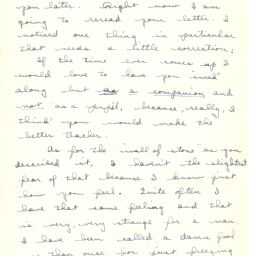 you later. Right now I am
going to reread your letter. I
noticed one thing in particular
that needs a little correction;
If the time ever comes up I
would love to have you "sneak"
along but as a companion and
not as a pupil, because, really, I
think you would make the
better teacher.
As for the "wall of stone" as you
described it, I haven't the slightest
fear of that because I know just
how you feel. Quite often I
have that same feeling and that
is very, very strange for a man.
I have been called a damn fool
than once for just freezing